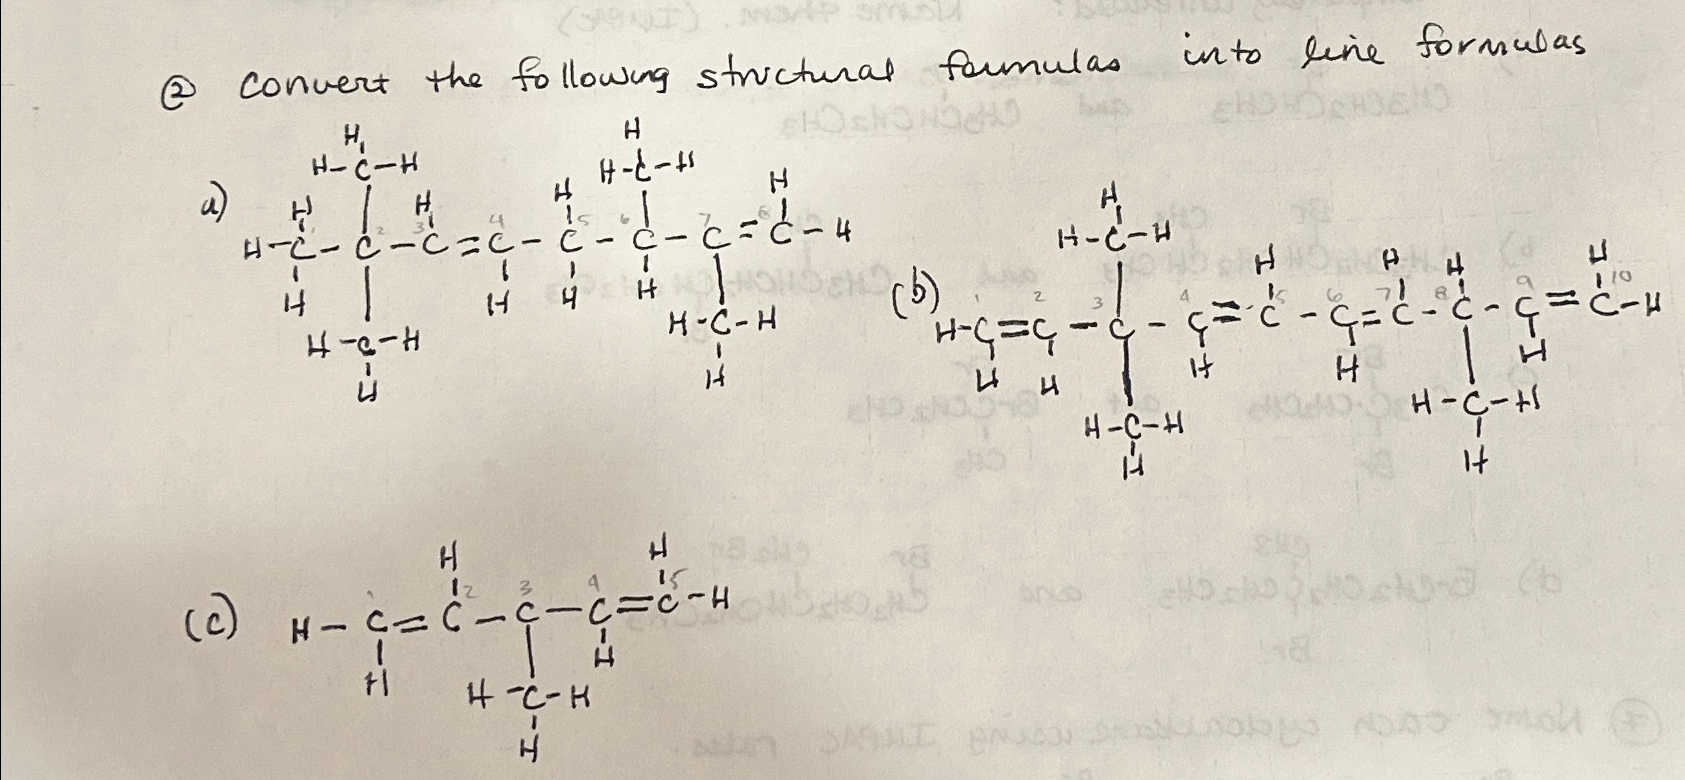 ② Convert the following structural formulas into line formulas
a)
H
H-C-H
H H H-C-H
H H H
H-C-C-C=C-C-C-C=C-H
1 2 3 4 5 6 7 8
H H H H
H-C-H H-C-H
H H
(b)
H
H-C-H
H H H H
1 2 3 4 5 6 7 8 9 10
H-C=C-C-C=C-C=C-C-C=C-H
H H H H H
H-C-H H-C-H
H H
(c)
H H
1 2 3 4 5
H-C=C-C-C=C-H
H H
H-C-H
H